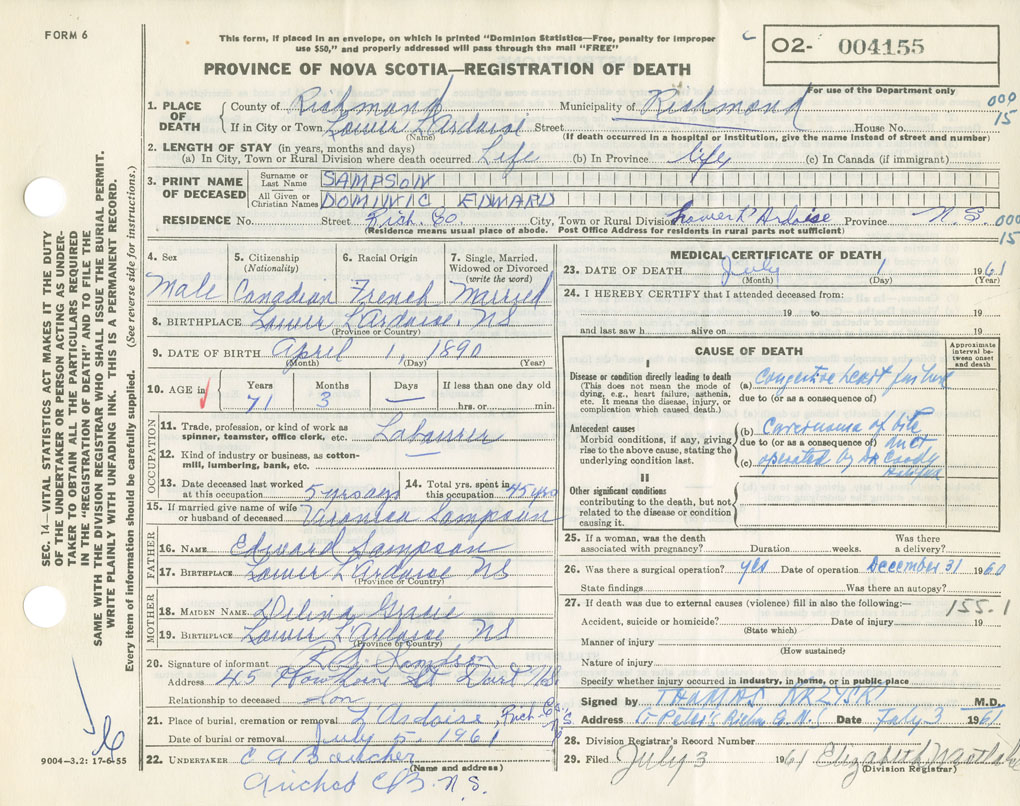 FORM 6
This form, if placed in an envelope, on which is printed "Dominion Statistics—Free, penalty for improper
use $50," and properly addressed will pass through the mail "FREE"
O2- 004155
For use of the Department only
PROVINCE OF NOVA SCOTIA—REGISTRATION OF DEATH
1. PLACE OF DEATH County of Richmond Municipality of Richmond 000
If in City or Town Lower L'Ardoise Street House No. 15
(Name) (If death occurred in a hospital or institution, give the name instead of street and number)
2. LENGTH OF STAY (in years, months and days)
(a) In City, Town or Rural Division where death occurred Life (b) In Province life (c) In Canada (if immigrant)
3. PRINT NAME OF DECEASED Surname or Last Name SAMPSON
All Given or Christian Names DOMINIC EDWARD
RESIDENCE No. Street Rich. Co. City, Town or Rural Division Lower L'Ardoise Province N.S. 000
(Residence means usual place of abode. Post Office Address for residents in rural parts not sufficient) 15
4. Sex Male
5. Citizenship (Nationality) Canadian
6. Racial Origin French
7. Single, Married, Widowed or Divorced (write the word) Married
8. BIRTHPLACE Lower L'Ardoise, NS
(Province or Country)
9. DATE OF BIRTH April 1, 1890
(Month) (Day) (Year)
10. AGE in Years 71 Months 3 Days — If less than one day old
hrs. or min.
OCCUPATION
11. Trade, profession, or kind of work as
spinner, teamster, office clerk, etc. Labourer
12. Kind of industry or business, as cotton-
mill, lumbering, bank, etc.
13. Date deceased last worked
at this occupation 5 yrs ago
14. Total yrs. spent in
this occupation 45 yrs
15. If married give name of wife
or husband of deceased Veronica Sampson
FATHER
16. NAME Edward Sampson
17. BIRTHPLACE Lower L'Ardoise NS
(Province or Country)
MOTHER
18. MAIDEN NAME Delina Gracie
19. BIRTHPLACE Lower L'Ardoise, NS
(Province or Country)
20. Signature of informant Sampson
Address 45 Hawthorne St Dart NS
Relationship to deceased Son
21. Place of burial, cremation or removal L'Ardoise, Rich Co., N.S.
Date of burial or removal July 5, 1961
22. UNDERTAKER C A Boucher
(Name and address)
Arichat C.B. N.S.
MEDICAL CERTIFICATE OF DEATH
23. DATE OF DEATH July 1 1961
(Month) (Day) (Year)
24. I HEREBY CERTIFY that I attended deceased from:
19 to 19
and last saw h alive on 19
CAUSE OF DEATH
Approximate interval between onset and death
I
Disease or condition directly leading to death
(This does not mean the mode of
dying, e.g., heart failure, asthenia,
etc. It means the disease, injury, or
complication which caused death.)
(a) Congestive heart failure
due to (or as a consequence of)
Antecedent causes
Morbid conditions, if any, giving
rise to the above cause, stating the
underlying condition last.
(b) Carcinoma of bile
due to (or as a consequence of) duct
(c) operated by Dr Coady
Halifax
II
Other significant conditions
contributing to the death, but not
related to the disease or condition
causing it.
25. If a woman, was the death
associated with pregnancy? Duration weeks. Was there
a delivery?
26. Was there a surgical operation? yes Date of operation December 31 1960
State findings Was there an autopsy?
27. If death was due to external causes (violence) fill in also the following:— 155.1
Accident, suicide or homicide? Date of injury 19
(State which)
Manner of injury
(How sustained)
Nature of injury
Specify whether injury occurred in industry, in home, or in public place
Signed by THOMAS KRZYSKI M.D.
Address St Peter's Richm Co. N.S. Date July 3 1961
28. Division Registrar's Record Number
29. Filed July 3 1961 Elizabeth
(Division Registrar)
SEC. 14—VITAL STATISTICS ACT MAKES IT THE DUTY
OF THE UNDERTAKER OR PERSON ACTING AS UNDER-
TAKER TO OBTAIN ALL THE PARTICULARS REQUIRED
IN THE "REGISTRATION OF DEATH" AND TO FILE THE
SAME WITH THE DIVISION REGISTRAR WHO SHALL ISSUE THE BURIAL PERMIT.
WRITE PLAINLY WITH UNFADING INK. THIS IS A PERMANENT RECORD.
Every item of information should be carefully supplied. (See reverse side for instructions.)
9004-3.2: 17-6-55